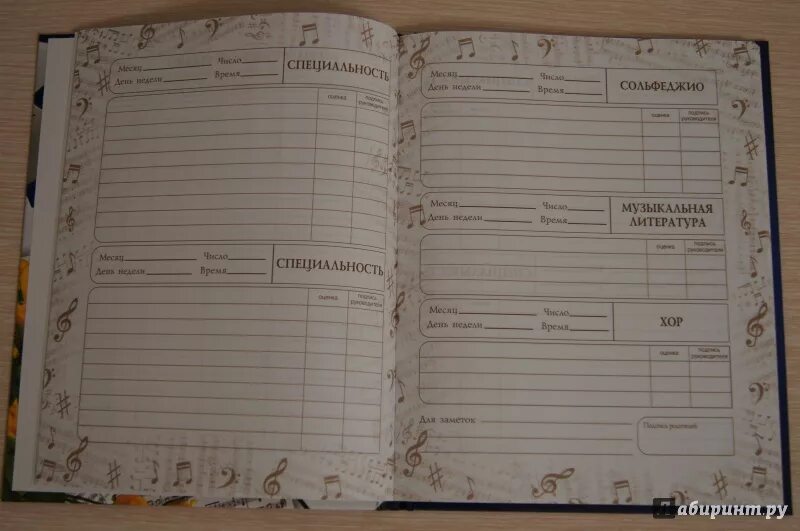 Месяц Число
День недели Время
СПЕЦИАЛЬНОСТЬ
оценка подпись руководителя
Месяц Число
День недели Время
СПЕЦИАЛЬНОСТЬ
оценка подпись руководителя
Месяц Число
День недели Время
СОЛЬФЕДЖИО
оценка подпись руководителя
Месяц Число
День недели Время
МУЗЫКАЛЬНАЯ
ЛИТЕРАТУРА
оценка подпись руководителя
Месяц Число
День недели Время
ХОР
оценка подпись руководителя
Для заметок
Подпись родителей
Лабиринт.ру